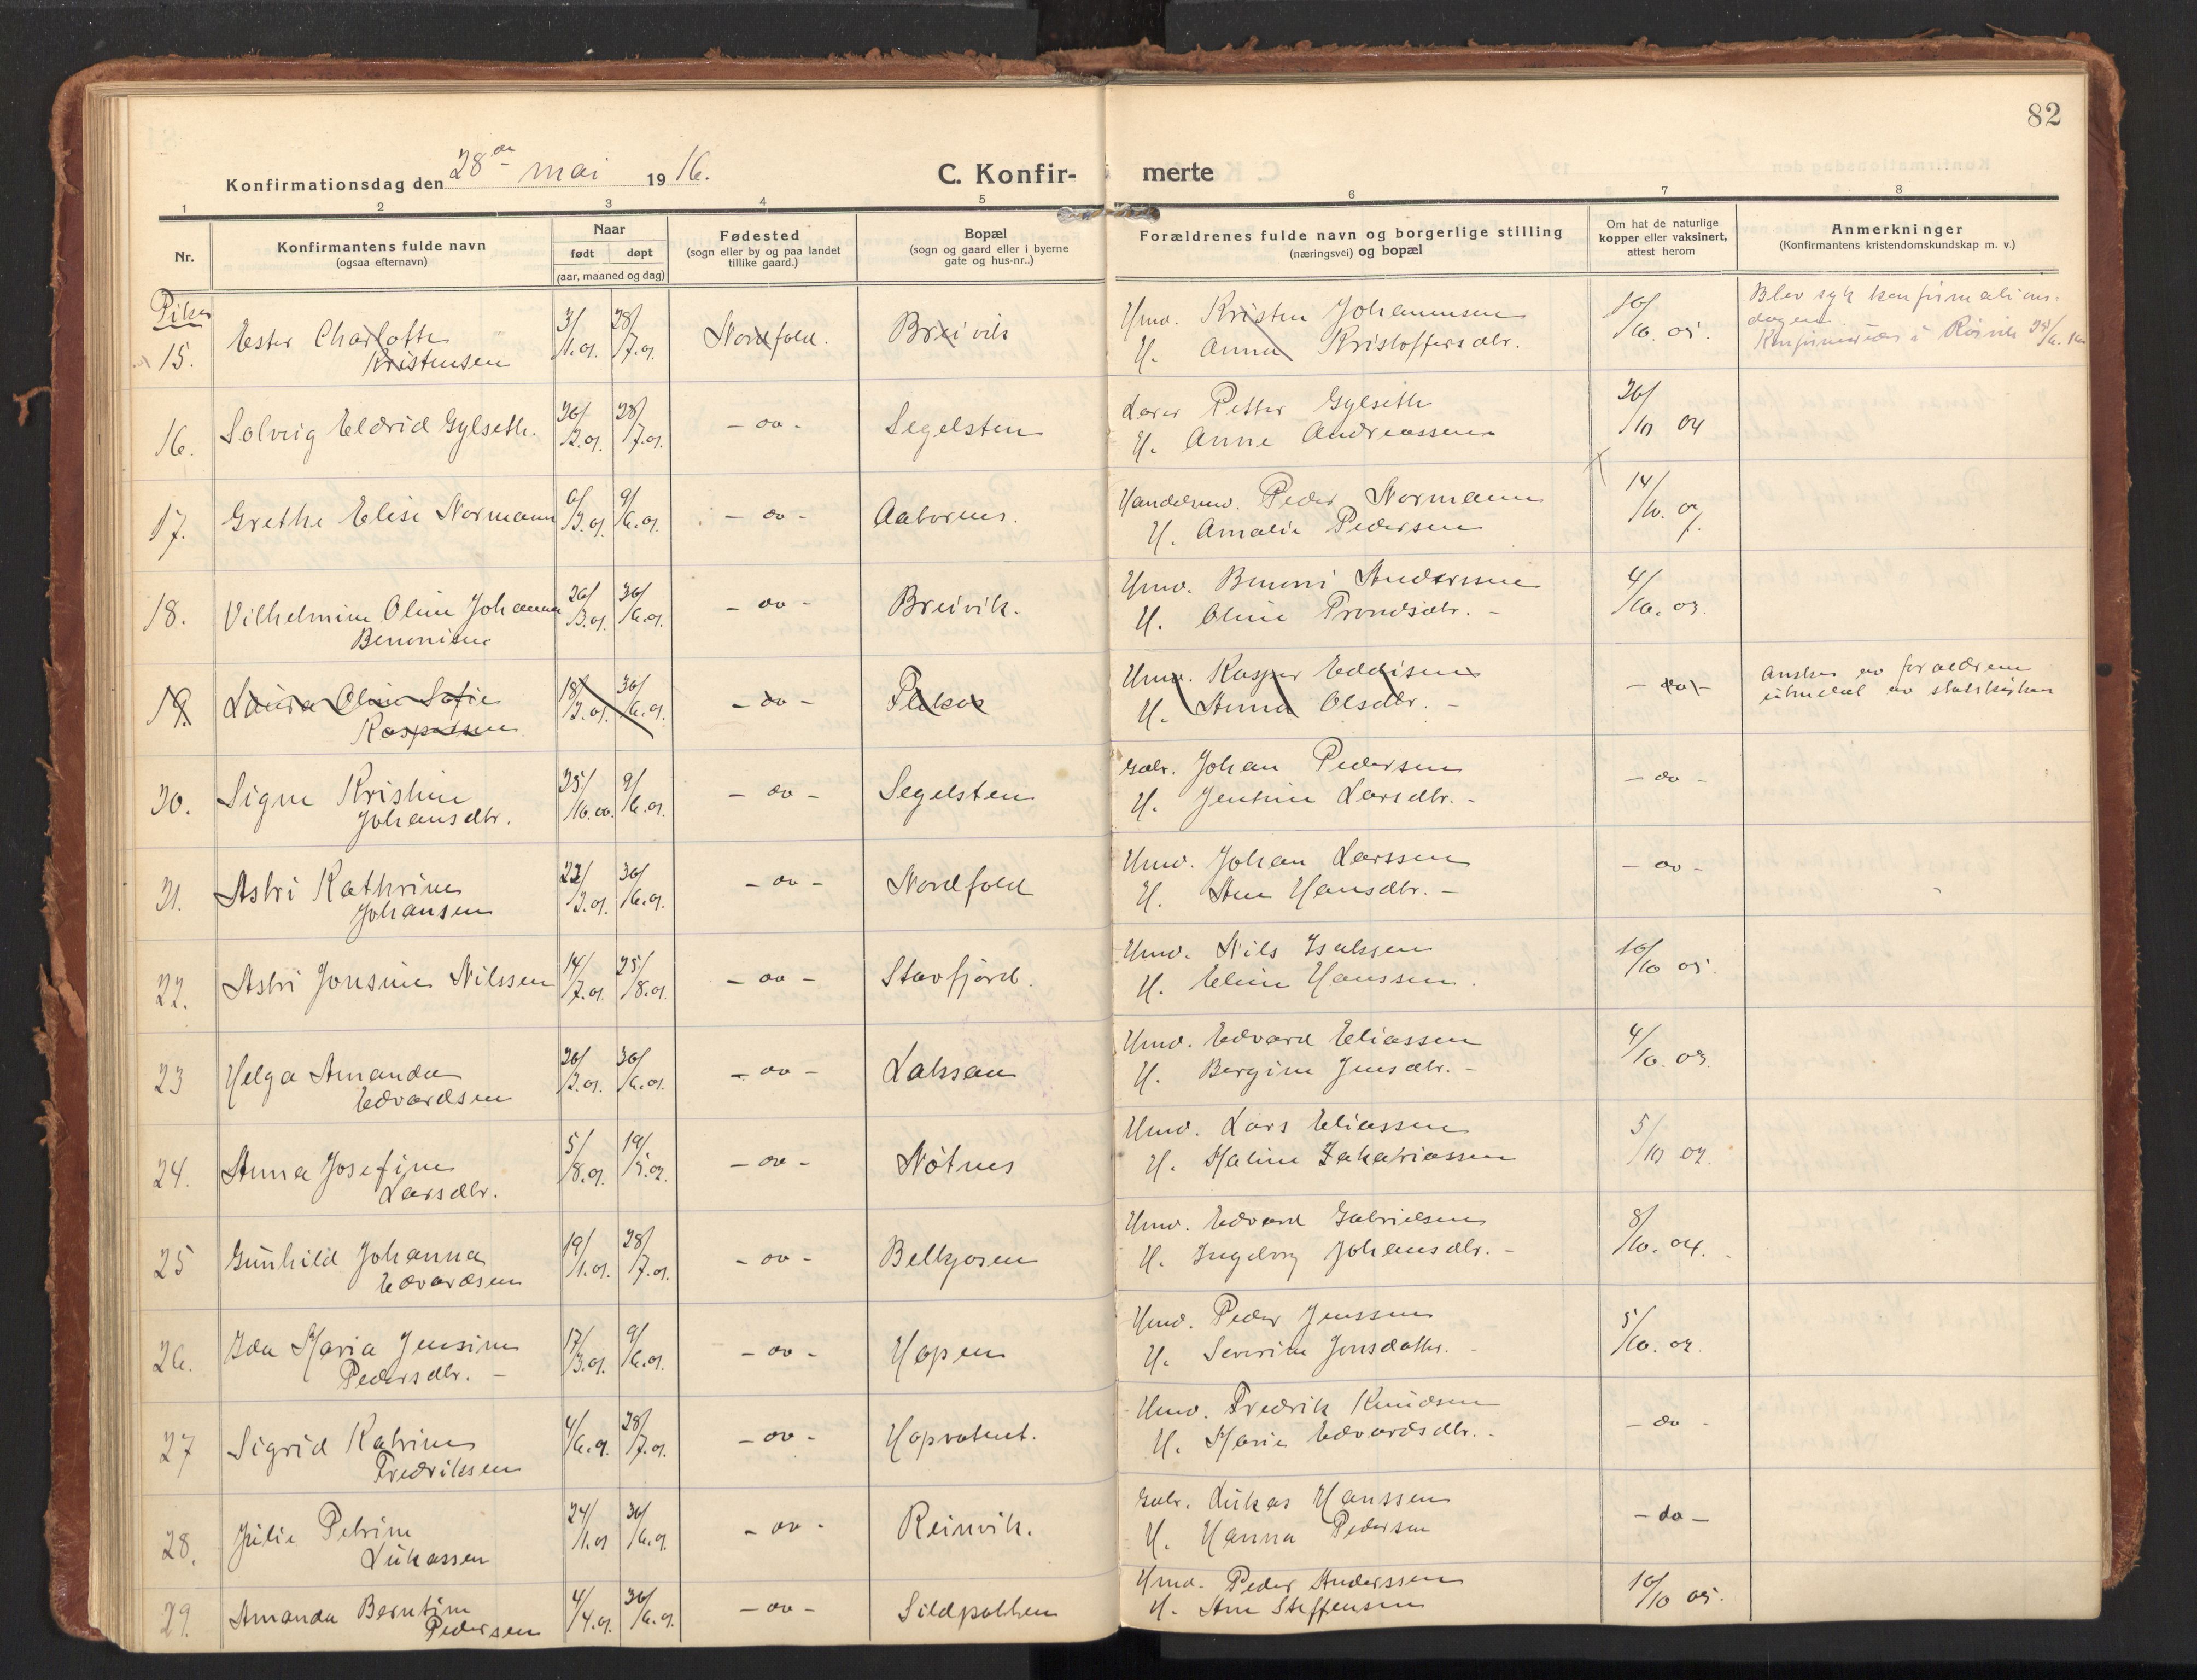 82
Konfirmationsdag den 28de mai 1916.
C. Konfir- merte
1 2 3 4 5 6 7 8
Nr.
Konfirmantens fulde navn
(ogsaa efternavn)
Naar
født døpt
(aar, maaned og dag)
Fødested
(sogn eller by og paa landet
tillike gaard.)
Bopæl
(sogn og gaard eller i byerne
gate og hus-nr..)
Forældrenes fulde navn og borgerlige stilling
(næringsvei) og bopæl
Om hat de naturlige
kopper eller vaksinert,
attest herom
Anmerkninger
(Konfirmantens kristendomskundskap m. v.)
Piker
15. Ester Charlotte 3/1.01. 28/7.01. Nordfold. Breivik Gmd. Kristen Johannesen 10/10. 05. Blev syk konfirmations-
Kristensen H. Anna Kristoffersdtr. dagen.
Konfirmeres i Røsvik 25/6. 16
16. Solveig Eldrid Gylseth. 20/2.01. 28/7.01. - do - Segelsten Lærer Petter Gylseth 26/10 04
H. Anne Andreassen
17. Grethe Elise Normann 6/2.01. 9/6.01. - do - Aabornes. Handelsmd. Peder Normann 14/10. 07.
H. Amalie Pedersen
18. Vilhelmine Oline Johanna 20/3.01. 30/6.01. - do - Breivik. Gmd. Benoni Anderssen 4/10. 09.
Benonisen H. Oline Trondsdtr. -
19. Laura Oline Sofie 18/2.01. 30/6.01. - do - Gmd. Kasper Eddisen - do - Ønskes av forældrene
Kaspersen H. Anna Olsdtr. - utmeldt av statskirken
20. Signe Kristine 25/10.00. 9/6.01. - do - Segelsten Gbr. Johan Pedersen - do -
Johansdtr. H. Jentine Larsdtr. -
21. Astri Kathrine 22/2.01. 30/6.01. - do - Nordfold Gmd. Johan Larssen - do -
Johansen H. Ane Hansdtr. -
22. Astri Jonsine Nilssen 14/7.01. 25/8.01. - do - Stavfjord. Gmd. Nils Isaksen 10/10 05.
H. Eline Hanssen.
23 Helga Amanda 20/2.01. 30/6.01. - do - Laksaa Gmd. Edvard Eliassen 4/10. 09.
Edvardsen H. Bergine Jensdtr. -
24. Anna Josefine 5/8.01. 19/5.02. - do - Nötnes Gmd. Lars Eliassen 5/10 09.
Larsdtr. H. Maline Zakariassen
25 Gunhild Johanna 19/1.01. 28/7.01. - do - Belkjosen Gmd. Edvard Gabrielsen 8/10. 04.
Edvardsen H. Ingeborg Johansdtr. -
26. Ida Maria Jensine 17/3.01. 9/6.01. - do - Hopen Gmd. Peder Jenssen 5/10. 09.
Pedersdtr. - H. Severine Jonsdatter. -
27 Sigrid Katrine 4/6.01. 28/7.01. - do - Hopvatnet. Gmd. Fredrik Knudsen - do -
Fredriksen H. Marie Edvardsdtr. -
28. Julie Petrine 24/1.01 30/6.01. - do - Reinvik. Gbr. Lukas Hanssen - do -
Lukassen H. Hanna Pedersen
29. Amanda Berntine 4/4.01. 30/6.01. - do - Sildpollen Gmd. Peder Anderssen 10/10 05.
Pedersen H. Ane Steffensen